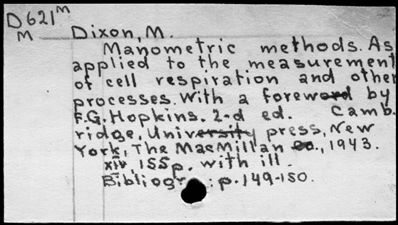 D621M
M Dixon, M.
Manometric methods. As
applied to the measurement
of cell respiration and other
processes. With a foreword by
F.G. Hopkins. 2-d ed. Camb.
ridge, University press, New
York, The MacMillan co., 1943.
XIV, 155p. with ill.
Bibliogr.: p. 149-150.